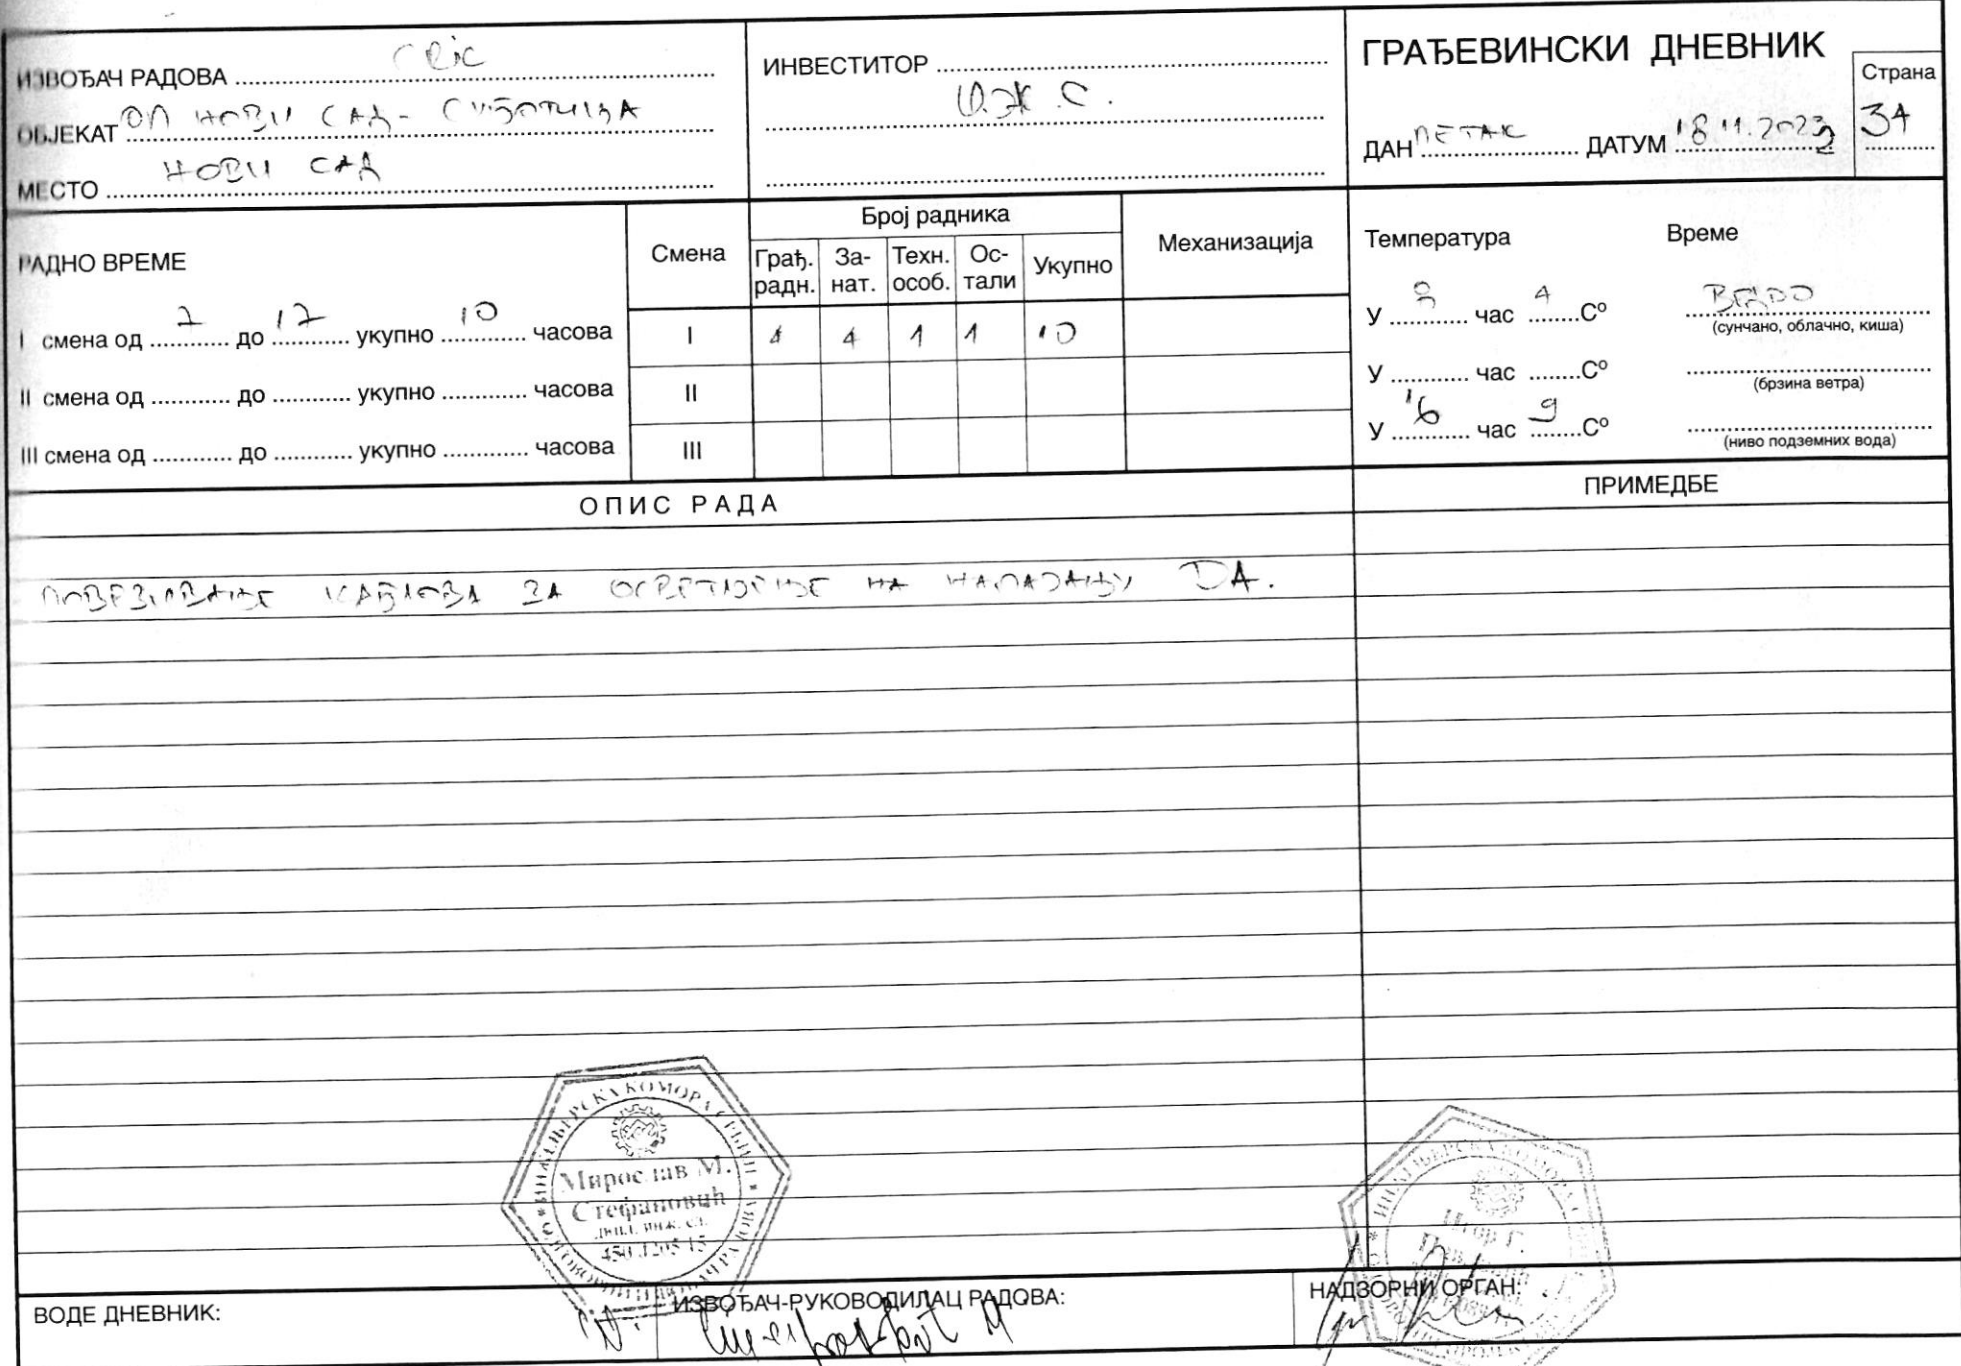 ИЗВОЂАЧ РАДОВА CRIC
ОБЈЕКАТ ДЛ НОВИ САД - СУБОТИЦА
МЕСТО НОВИ САД
ИНВЕСТИТОР
И.Ж.С.
ГРАЂЕВИНСКИ ДНЕВНИК
Страна
34
ДАН ПЕТАК ДАТУМ 18.11.2022
РАДНО ВРЕМЕ
I смена од 7 до 17 укупно 10 часова
II смена од до укупно часова
III смена од до укупно часова
Смена
Број радника
Механизација
Грађ. радн. За-нат. Техн. особ. Ос-тали Укупно
I 4 4 1 1 10
II
III
Температура Време
У 8 час 4 Cº ВЕДРО
(сунчано, облачно, киша)
У час Cº
(брзина ветра)
У 16 час 9 Cº
(ниво подземних вода)
ОПИС РАДА
ПРИМЕДБЕ
ПОВЕЗИВАЊЕ КАБЛОВА ЗА ОСВЕТЉЕЊЕ НА НАПАЈАЊУ DA.
ИНЖЕЊЕРСКА КОМОРА СРБИЈЕ
Мирослав М.
Стефановић
дипл. инж. ел.
ИНЖЕЊЕРСКА КОМОРА
Игор Г.
ВОДЕ ДНЕВНИК:
ИЗВОЂАЧ-РУКОВОДИЛАЦ РАДОВА:
НАДЗОРНИ ОРГАН: